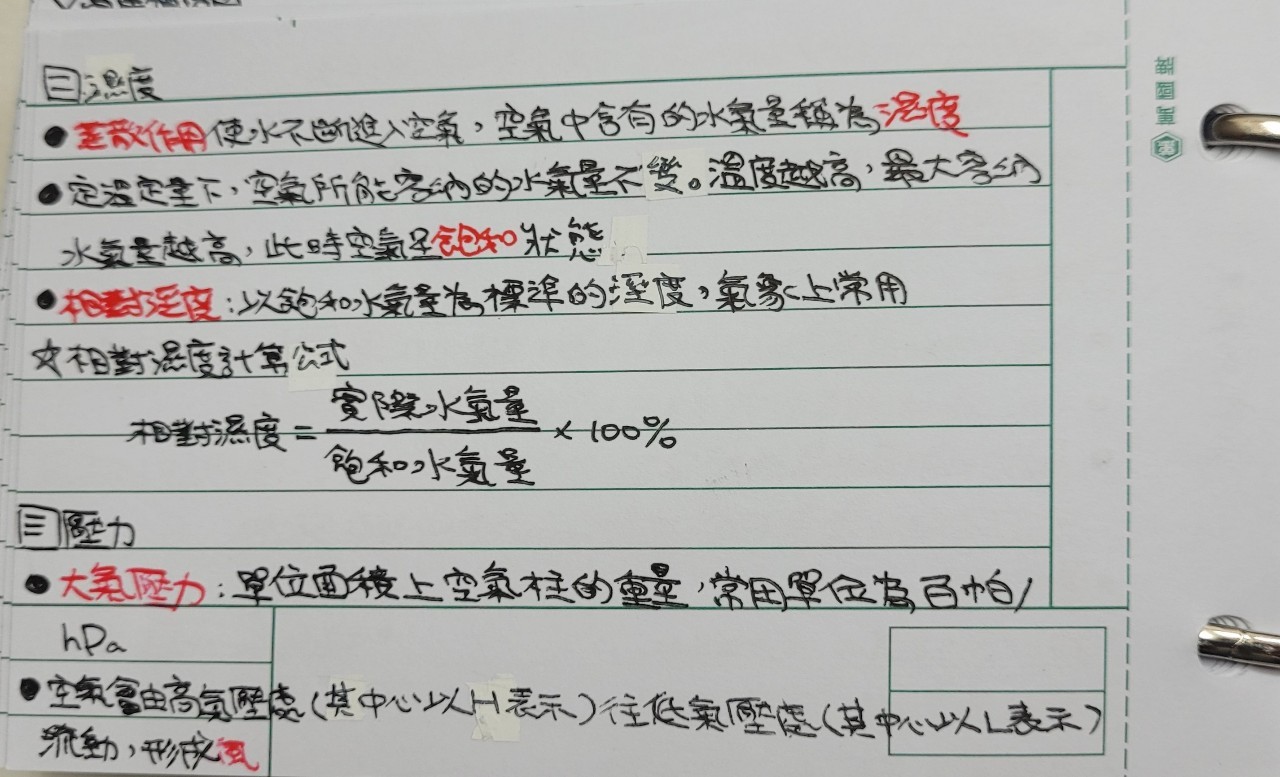 二 濕度
●蒸散作用使水不斷進入空氣，空氣中含有的水氣量稱為濕度
●定溫定量下，空氣所能容納的水氣量不變。溫度越高，最大容納
水氣量越高，此時空氣呈飽和狀態
●相對溼度：以飽和水氣量為標準的溼度，氣象上常用
☆相對濕度計算公式
相對濕度 = 實際水氣量 / 飽和水氣量 × 100%
三 壓力
●大氣壓力：單位面積上空氣柱的重量，常用單位為百帕/
hPa
●空氣會由高氣壓處(其中心以H表示)往低氣壓處(其中心以L表示)
流動，形成風
萬國牌